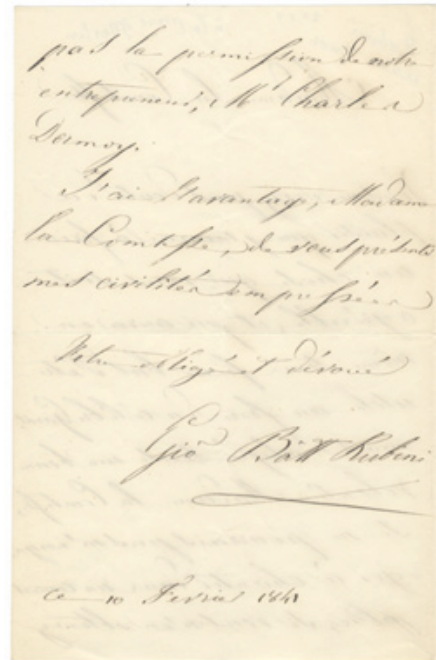 pas la permission de notre
entrepreneur, Mr Charles
Dormoy.
J'ai l'avantage, Madame
la Comtesse, de vous présenter
mes civilités empressées
Votre obligé et dévoué
Gio Batt Rubini
ce 10 Fevrier 1841